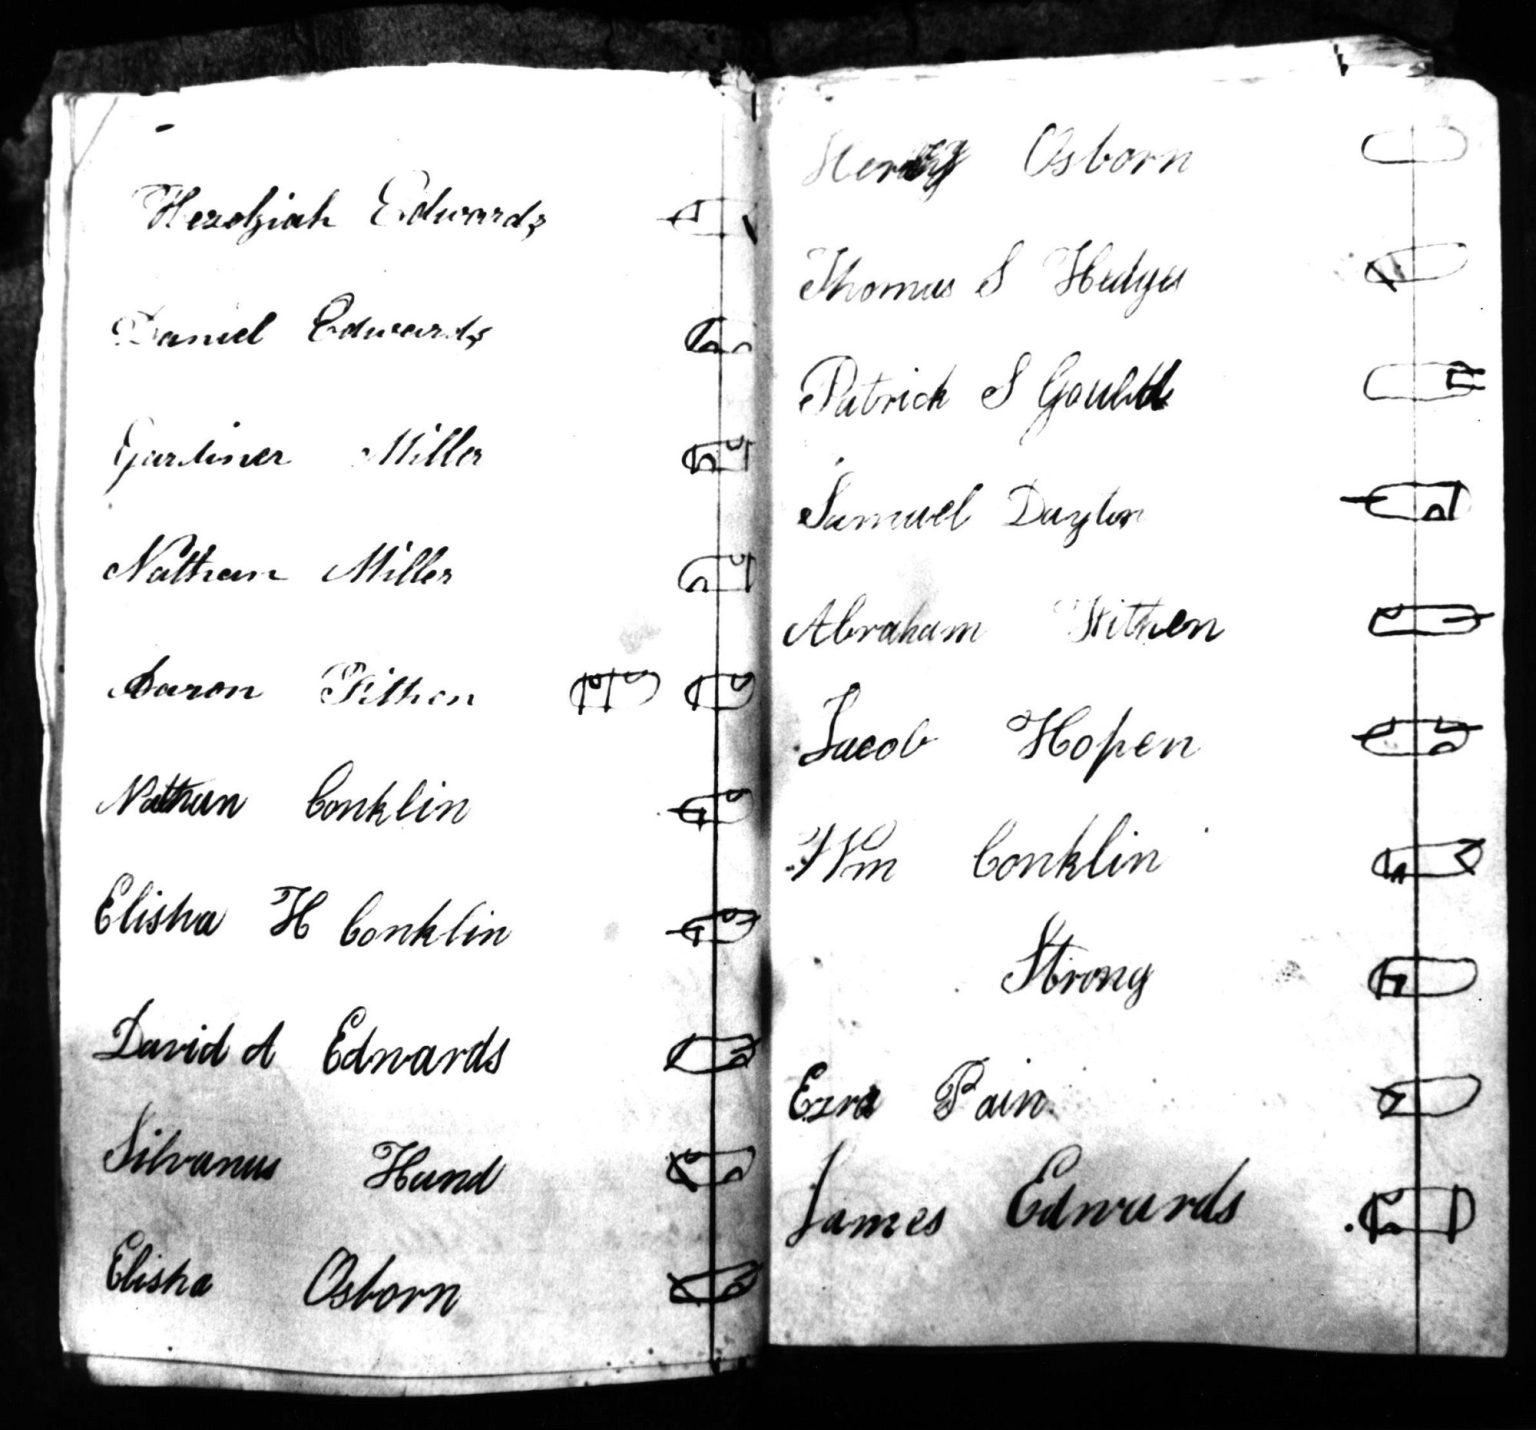 Hezekiah Edwards
Daniel Edwards
Gardiner Miller
Nathan Miller
Aaron Fithen
Nathan Conklin
Elisha H Conklin
David A Edwards
Silvanus Hand
Elisha Osborn
Henry Osborn
Thomas S Hedges
Patrick S Gould
Samuel Dayton
Abraham Fithen
Jacob Hopen
Wm Conklin
Strong
Ezra Pain
James Edwards